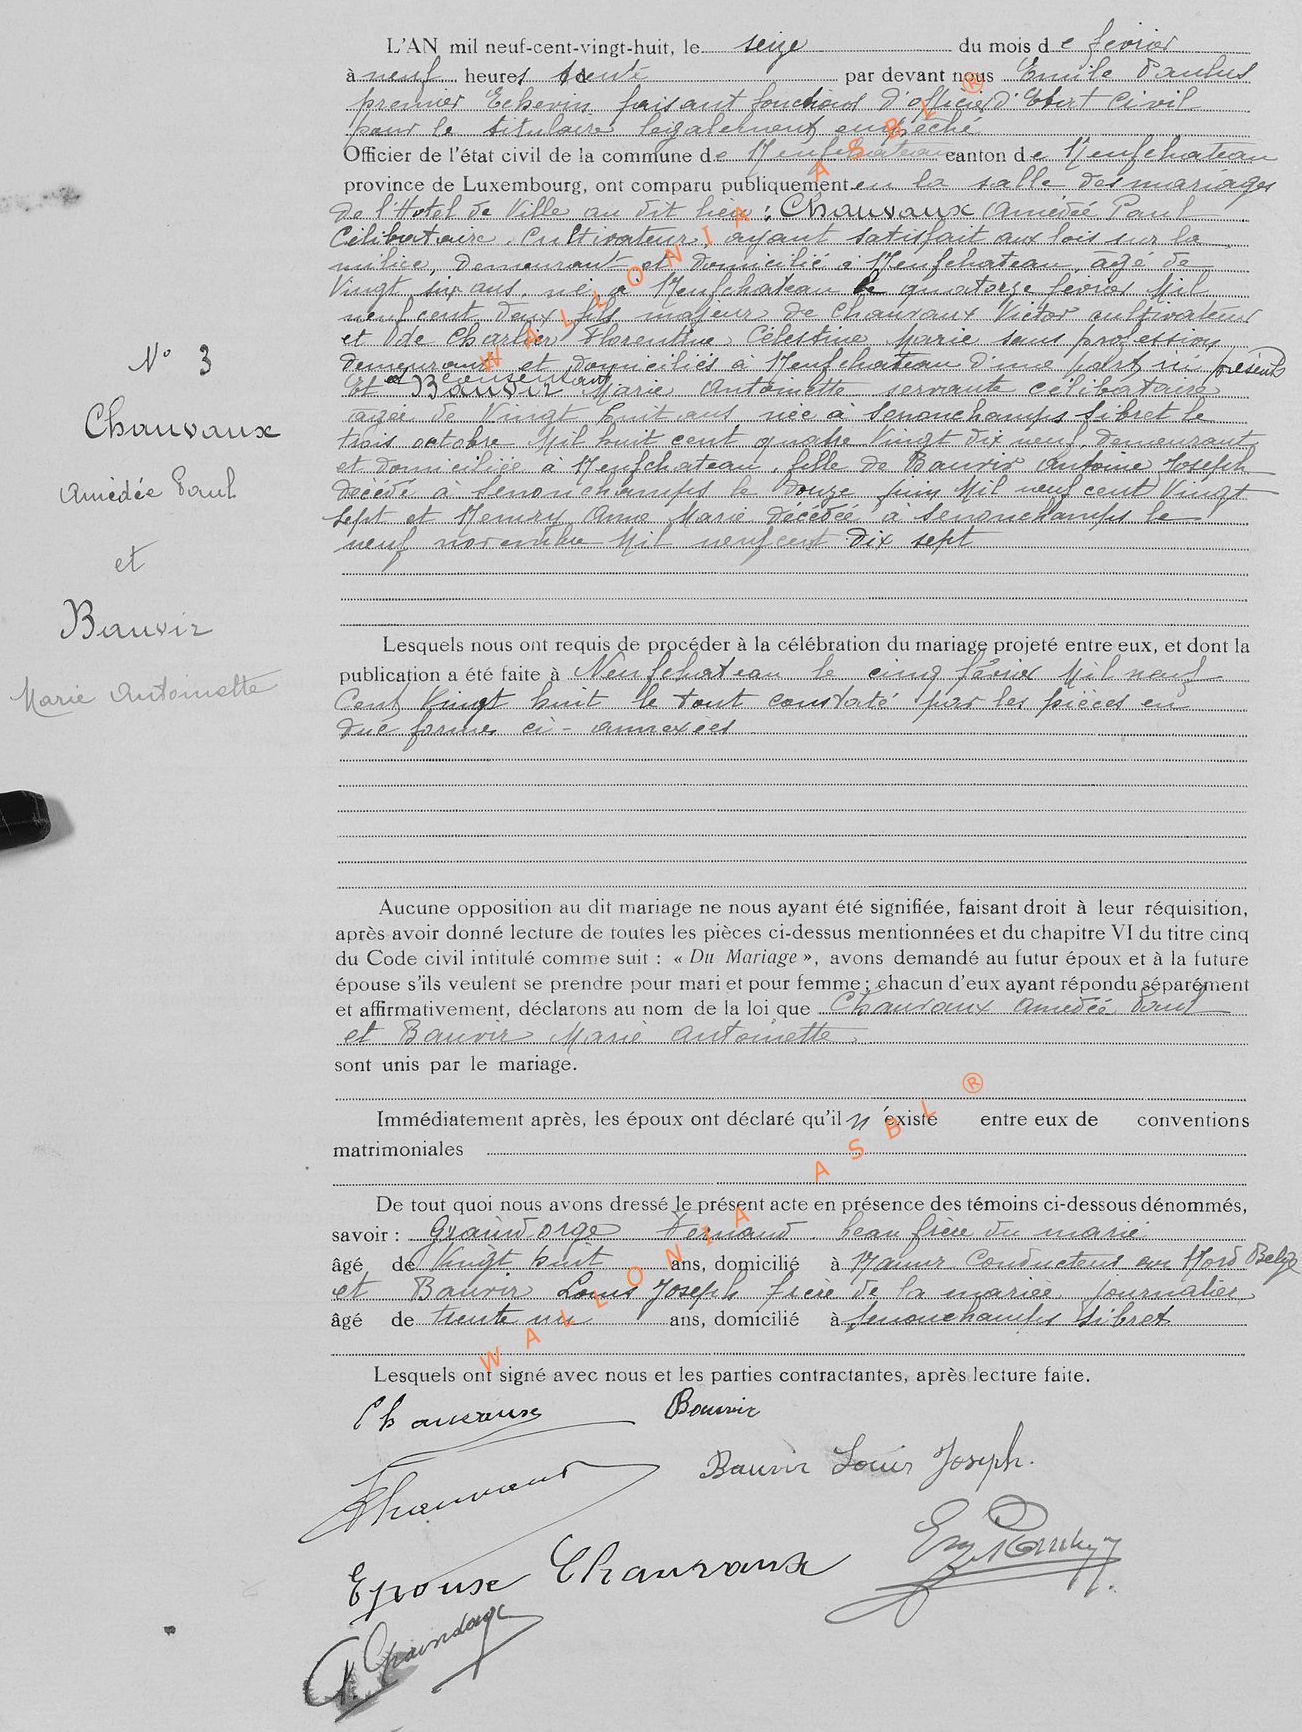 L'AN mil neuf-cent-vingt-huit, le seize du mois de février
à neuf heures trente par devant nous Emile Paulus
premier Echevin faisant fonctions d'officier d'Etat Civil
pour le titulaire légalement empêché
Officier de l'état civil de la commune de Neufchateau canton de Neufchateau
province de Luxembourg, ont comparu publiquement en la salle des mariages
de l'Hotel de Ville au dit lieu : Chauvaux Amédée Paul
Célibataire, Cultivateur, ayant satisfait aux lois sur la
milice, demeurant et domicilié à Neufchateau agé de
Vingt six ans, né à Neufchateau le quatorze février Mil
neuf cent deux fils majeur de Chauvaux Victor cultivateur
et de Charlier Florentine Célestine Marie sans profession
demeurant et domiciliés à Neufchateau d'une part, ici présents
et consentants
Et Bauvir Marie Antoinette servante célibataire
agée de Vingt huit ans née à Senonchamps Sibret le
trois octobre Mil huit cent quatre Vingt dix neuf, demeurant
et domiciliée à Neufchateau, fille de Bauvir Antoine Joseph
décédé à Senonchamps le douze juin Mil neuf cent Vingt
sept et Henry Anne Marie décédée à Senonchamps le
neuf novembre Mil neuf cent dix sept
N° 3
Chauvaux
Amédée Paul
et
Bauvir
Marie Antoinette
Lesquels nous ont requis de procéder à la célébration du mariage projeté entre eux, et dont la
publication a été faite à Neufchateau le cinq février Mil neuf
Cent Vingt huit le tout constaté par les pièces en
due forme ci-annexées
Aucune opposition au dit mariage ne nous ayant été signifiée, faisant droit à leur réquisition,
après avoir donné lecture de toutes les pièces ci-dessus mentionnées et du chapitre VI du titre cinq
du Code civil intitulé comme suit : « Du Mariage », avons demandé au futur époux et à la future
épouse s'ils veulent se prendre pour mari et pour femme ; chacun d'eux ayant répondu séparément
et affirmativement, déclarons au nom de la loi que Chauvaux Amédée Paul
et Bauvir Marie Antoinette
sont unis par le mariage.
Immédiatement après, les époux ont déclaré qu'il n'existe entre eux de conventions
matrimoniales
De tout quoi nous avons dressé le présent acte en présence des témoins ci-dessous dénommés,
savoir : Graindorge Fernand beau frère du marié
âgé de Vingt huit ans, domicilié à Namur Conducteur au Nord Belge
et Bauvir Louis Joseph frère de la mariée journalier
âgé de trente un ans, domicilié à Senonchamps Sibret
Lesquels ont signé avec nous et les parties contractantes, après lecture faite.
Chauvaux Bauvir
Bauvir Louis Joseph.
Epouse Chauvaux
Graindorge
WALLONIA ASBL ®
WALLONIA ASBL ®